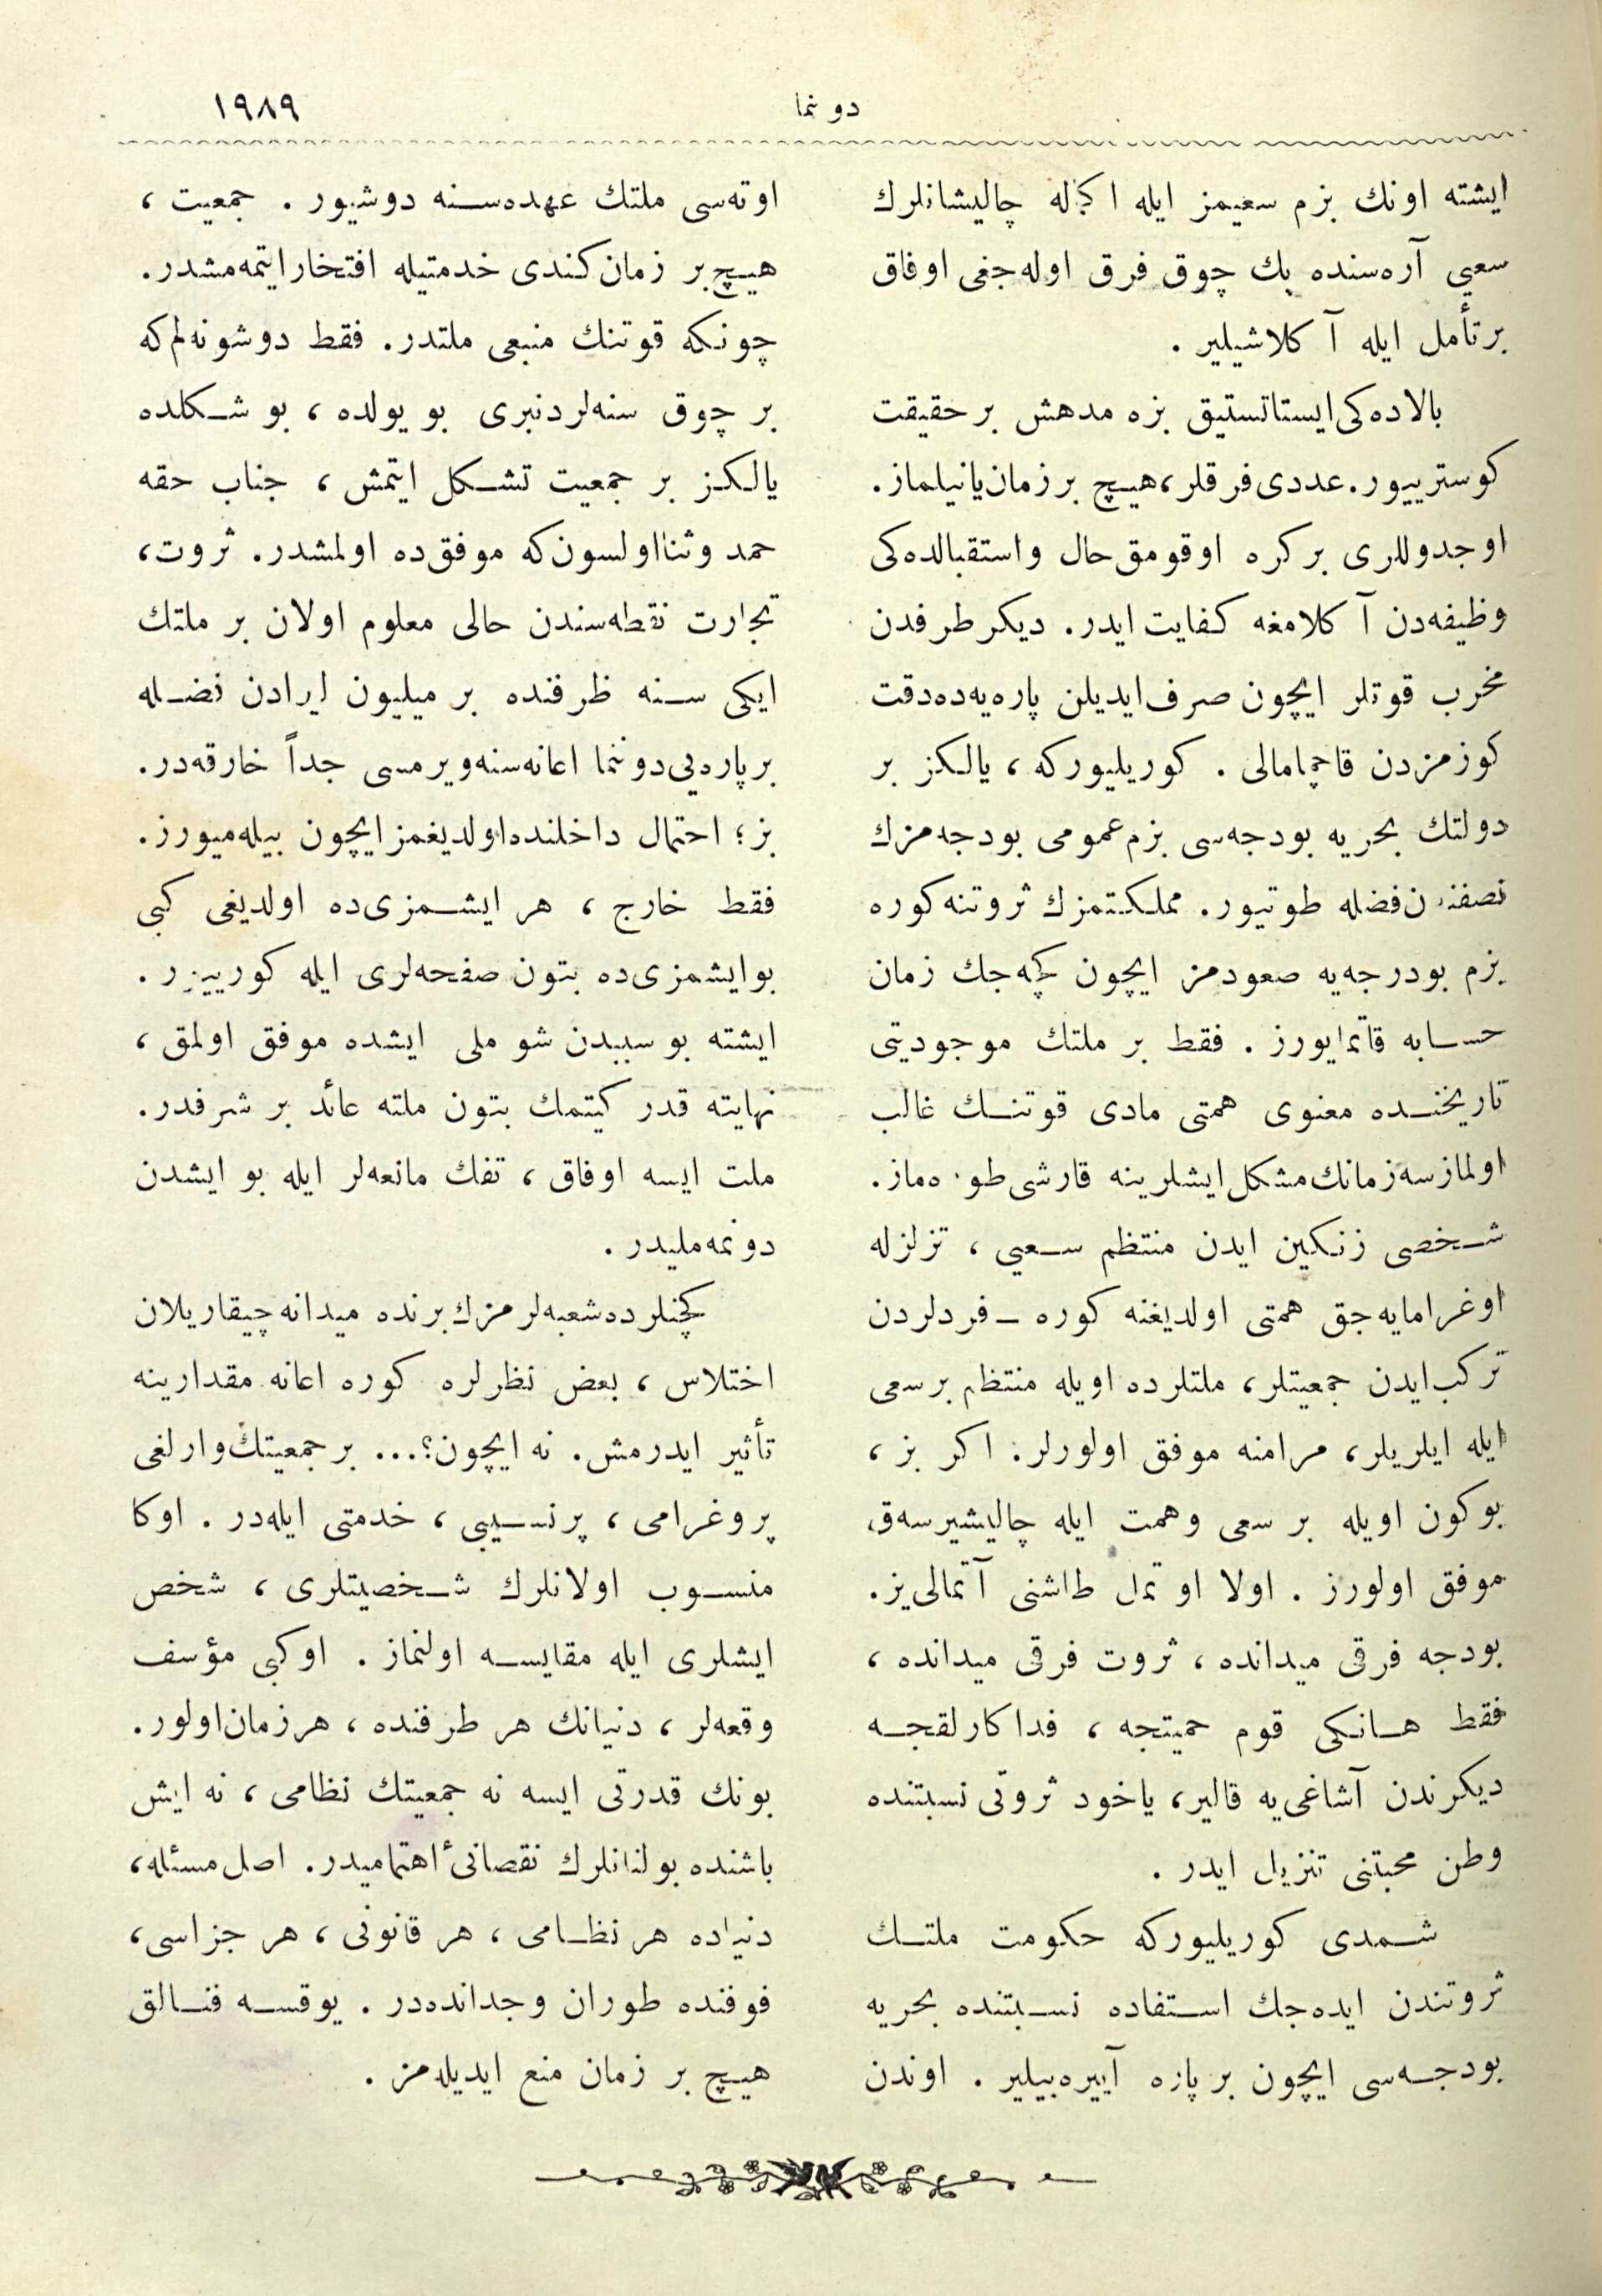 دوننما
١٩٨٩
ايشته اونك بزم سعيمز ايله اكله چاليشانلرك
سعيي آره‌سنده پك چوق فرق اوله‌جغى اوفاق
برتأمل ايله آكلاشيلير .
بالاده‌كى ايستاتستيق بزه مدهش بر حقيقت
كوسترييور. عددى فرقلر، هيچ بر زمان يانيلماز.
او جدوللرى بر كره اوقومق حال واستقبالده‌كى
وظيفه‌دن آكلامغه كفايت ايدر. ديكر طرفدن
مخرب قوتلر ايچون صرف ايديلن پاره‌يه‌ده دقت
كوزمزدن قاچمامالى . كوريليوركه ، يالكز بر
دولتك بحريه بودجه‌سى بزم عمومى بودجه‌مزك
نصفندن فضله طوتيور. مملكتمزك ثروتنه كوره
بزم بودرجه‌يه صعودمز ايچون كچه‌جك زمان
حسابه قاتمايورز . فقط بر ملتك موجوديتى
تاريخنده معنوى همتى مادى قوتنك غالب
اولمازسه زمانك مشكل ايشلرينه قارشى طوره‌ماز.
شخصى زنكين ايدن منتظم سعيي ، تزلزله
اوغرامايه‌جق همتى اولديغنه كوره ــ فردلردن
تركب ايدن جمعيتلر، ملتلرده اويله منتظم بر سعى
ايله ايلريلر، مرامنه موفق اولورلر. اكر بز ،
بوكون اويله بر سعى وهمت ايله چاليشيرسه‌ق
موفق اولورز . اولا او تمل طاشنى آتمالى‌يز.
بودجه فرقى ميدانده ، ثروت فرقى ميدانده ،
فقط هانكى قوم حميتجه ، فداكارلقجه
ديكرندن آشاغى‌يه قالير، ياخود ثروتى نسبتنده
وطن محبتنى تنزيل ايدر .
شمدى كوريليوركه حكومت ملتك
ثروتندن ايده‌جك استفاده نسبتنده بحريه
بودجه‌سى ايچون بر پاره آييره‌بيلير . اوندن
اوته‌سى ملتك عهده‌سنه دوشيور . جمعيت ،
هيچ بر زمان كندى خدمتيله افتخار ايتمه‌مشدر.
چونكه قوتنك منبعى ملتدر. فقط دوشونه‌لم كه
بر چوق سنه‌لردنبرى بو يولده ، بو شكلده
يالكز بر جمعيت تشكل ايتمش ، جناب حقه
حمد وثنا اولسون كه موفق‌ده اولمشدر. ثروت،
تجارت نقطه‌سندن حالى معلوم اولان بر ملتك
ايكى سنه ظرفنده بر ميليون ليرادن فضله
بر پاره‌يي دوننما اعانه‌سنه ويرمسى جداً خارقه‌در.
بز؛ احتمال داخلنده اولديغمز ايچون بيله‌ميورز.
فقط خارج ، هر ايشمزى‌ده اولديغى كبى
بو ايشمزى‌ده بتون صفحه‌لرى ايله كورييور.
ايشته بو سببدن شو ملى ايشده موفق اولمق ،
نهايته قدر كيتمك بتون ملته عائد بر شرفدر.
ملت ايسه اوفاق ، تفك مانعه‌لر ايله بو ايشدن
دونمه‌مليدر .
كچنلرده شعبه‌لرمزك برنده ميدانه چيقاريلان
اختلاس ، بعض نظرلره كوره اعانه مقدارينه
تأثير ايدرمش. نه ايچون؟... بر جمعيتك وارلغى
پروغرامى ، پرنسيبى ، خدمتى ايله‌در . اوكا
منسوب اولانلرك شخصيتلرى ، شخص
ايشلرى ايله مقايسه اولنماز . او كبى مؤسف
وقعه‌لر ، دنيانك هر طرفنده ، هر زمان اولور.
بونك قدرتى ايسه نه جمعيتك نظامى ، نه ايش
باشنده بولنانلرك نقصانئ اهتماميدر. اصل مسئله،
دنياده هر نظامى ، هر قانونى ، هر جزاسى،
فوقنده طوران وجدانده‌در . يوقسه فنالق
هيچ بر زمان منع ايديله‌مز .